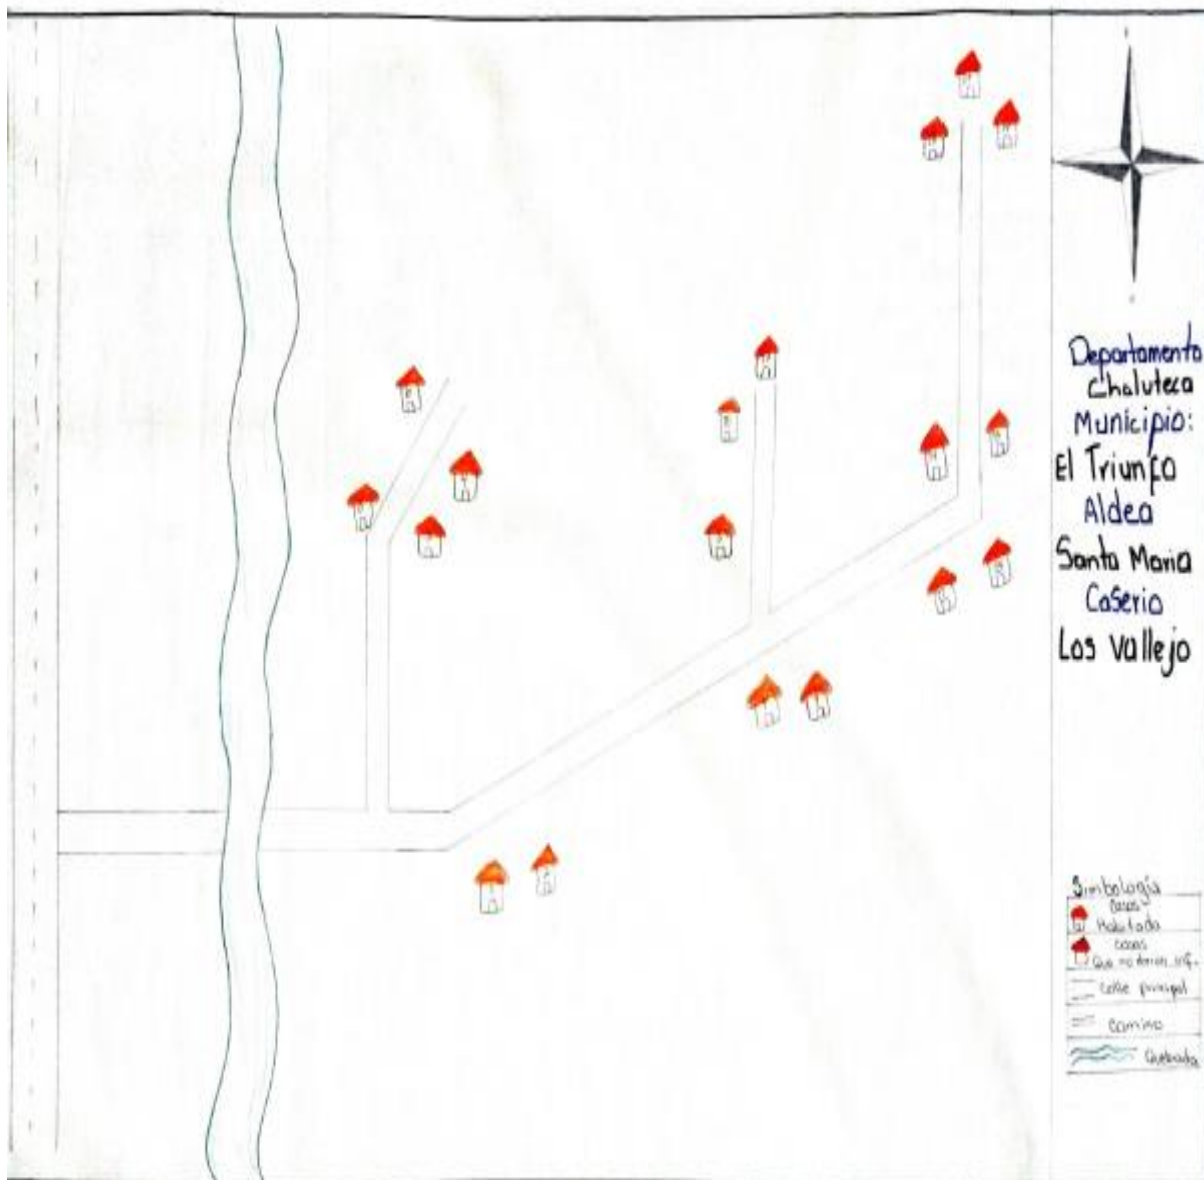 Departamento
Choluteca
Municipio:
El Triunfo
Aldea
Santa Maria
Caserio
Los Vallejo
Simbología
Casas
Habitada
casas
Que no dieron inf.
Calle principal
Camino
Quebrada